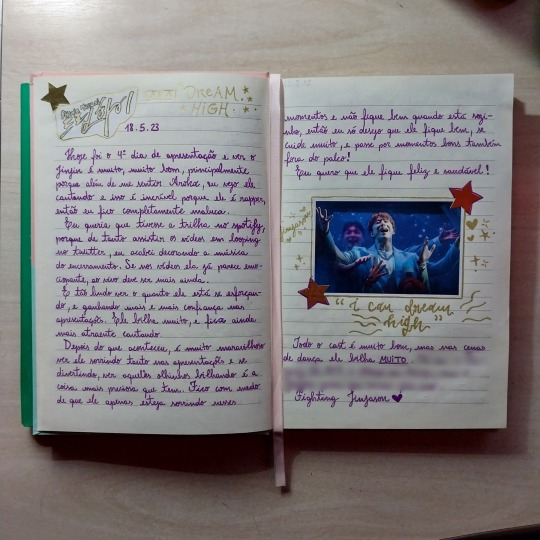 드림하이
DREAM
HIGH
18.5.23
Hoje foi o 4º dia de apresentação e ver o
Jinjin é muito, muito bom, principalmente
porque além de me sentir Aroha, eu vejo ele
cantando e isso é incrível porque ele é rapper,
então eu fico completamente maluca.
Eu queria que tivesse a trilha no spotify,
porque de tanto assistir os vídeos em looping
no twitter, eu acabei decorando a música
do encerramento. Se nos vídeos ela já parece emo-
cionante, ao vivo deve ser mais ainda.
É tão lindo ver o quanto ele está se esforçan-
do, e ganhando mais e mais confiança nas
apresentações. Ele brilha muito, e fica ainda
mais atraente cantando.
Depois do que aconteceu, é muito maravilhoso
ver ele sorrindo tanto nas apresentações e se
divertindo, ver aqueles olhinhos brilhando é a
coisa mais preciosa que tem. Fico com medo
de que ele apenas esteja sorrindo nesses
momentos e não fique bem quando está sozi-
nho, então eu só desejo que ele fique bem, se
cuide muito, e passe por momentos bons também
fora do palco!
Eu quero que ele fique feliz e saudável!
Jinjason
"I can dream
high"
Todo o cast é muito bom, mas nas cenas
de dança ele brilha MUITO.
Fighting Jinjason